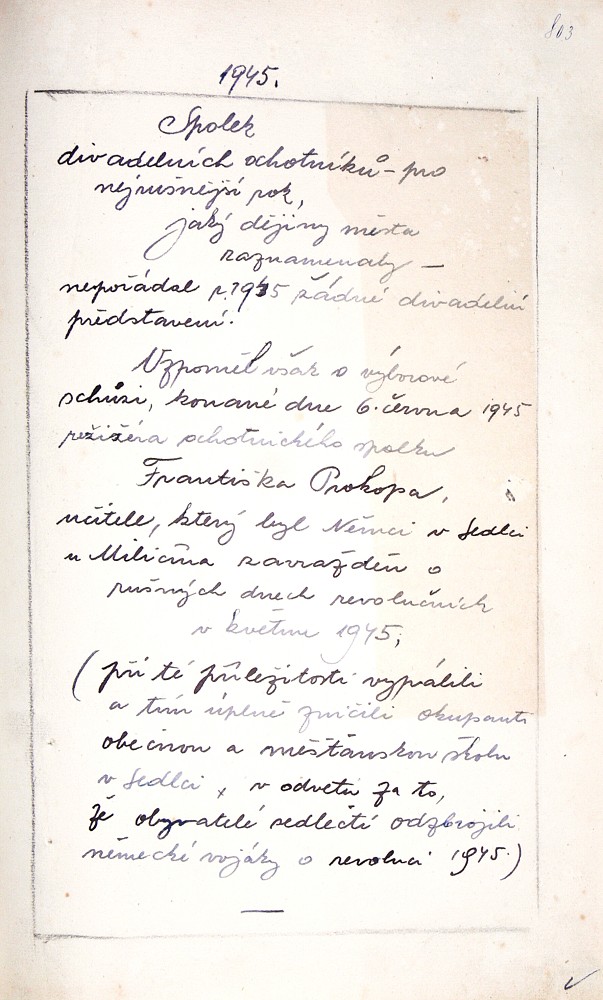 803
1945.
Spolek
divadelních ochotníků – pro
nejrušnější rok,
jaký dějiny města
zaznamenaly –
nepořádal r. 1945 žádné divadelní
představení.
Vzpomněl však o výborové
schůzi, konané dne 6. června 1945
režiséra ochotnického spolku
Františka Prokopa,
učitele, který byl Němci v Sedlci
u Miličína zavražděn o
rušných dnech revolučních
v květnu 1945;
(při té příležitosti vypálili
a tím úplně zničili okupanti
obecnou a měšťanskou školu
v Sedlci, v odvetu za to,
že obyvatelé sedlečtí odzbrojili
německé vojáky o revoluci 1945.)